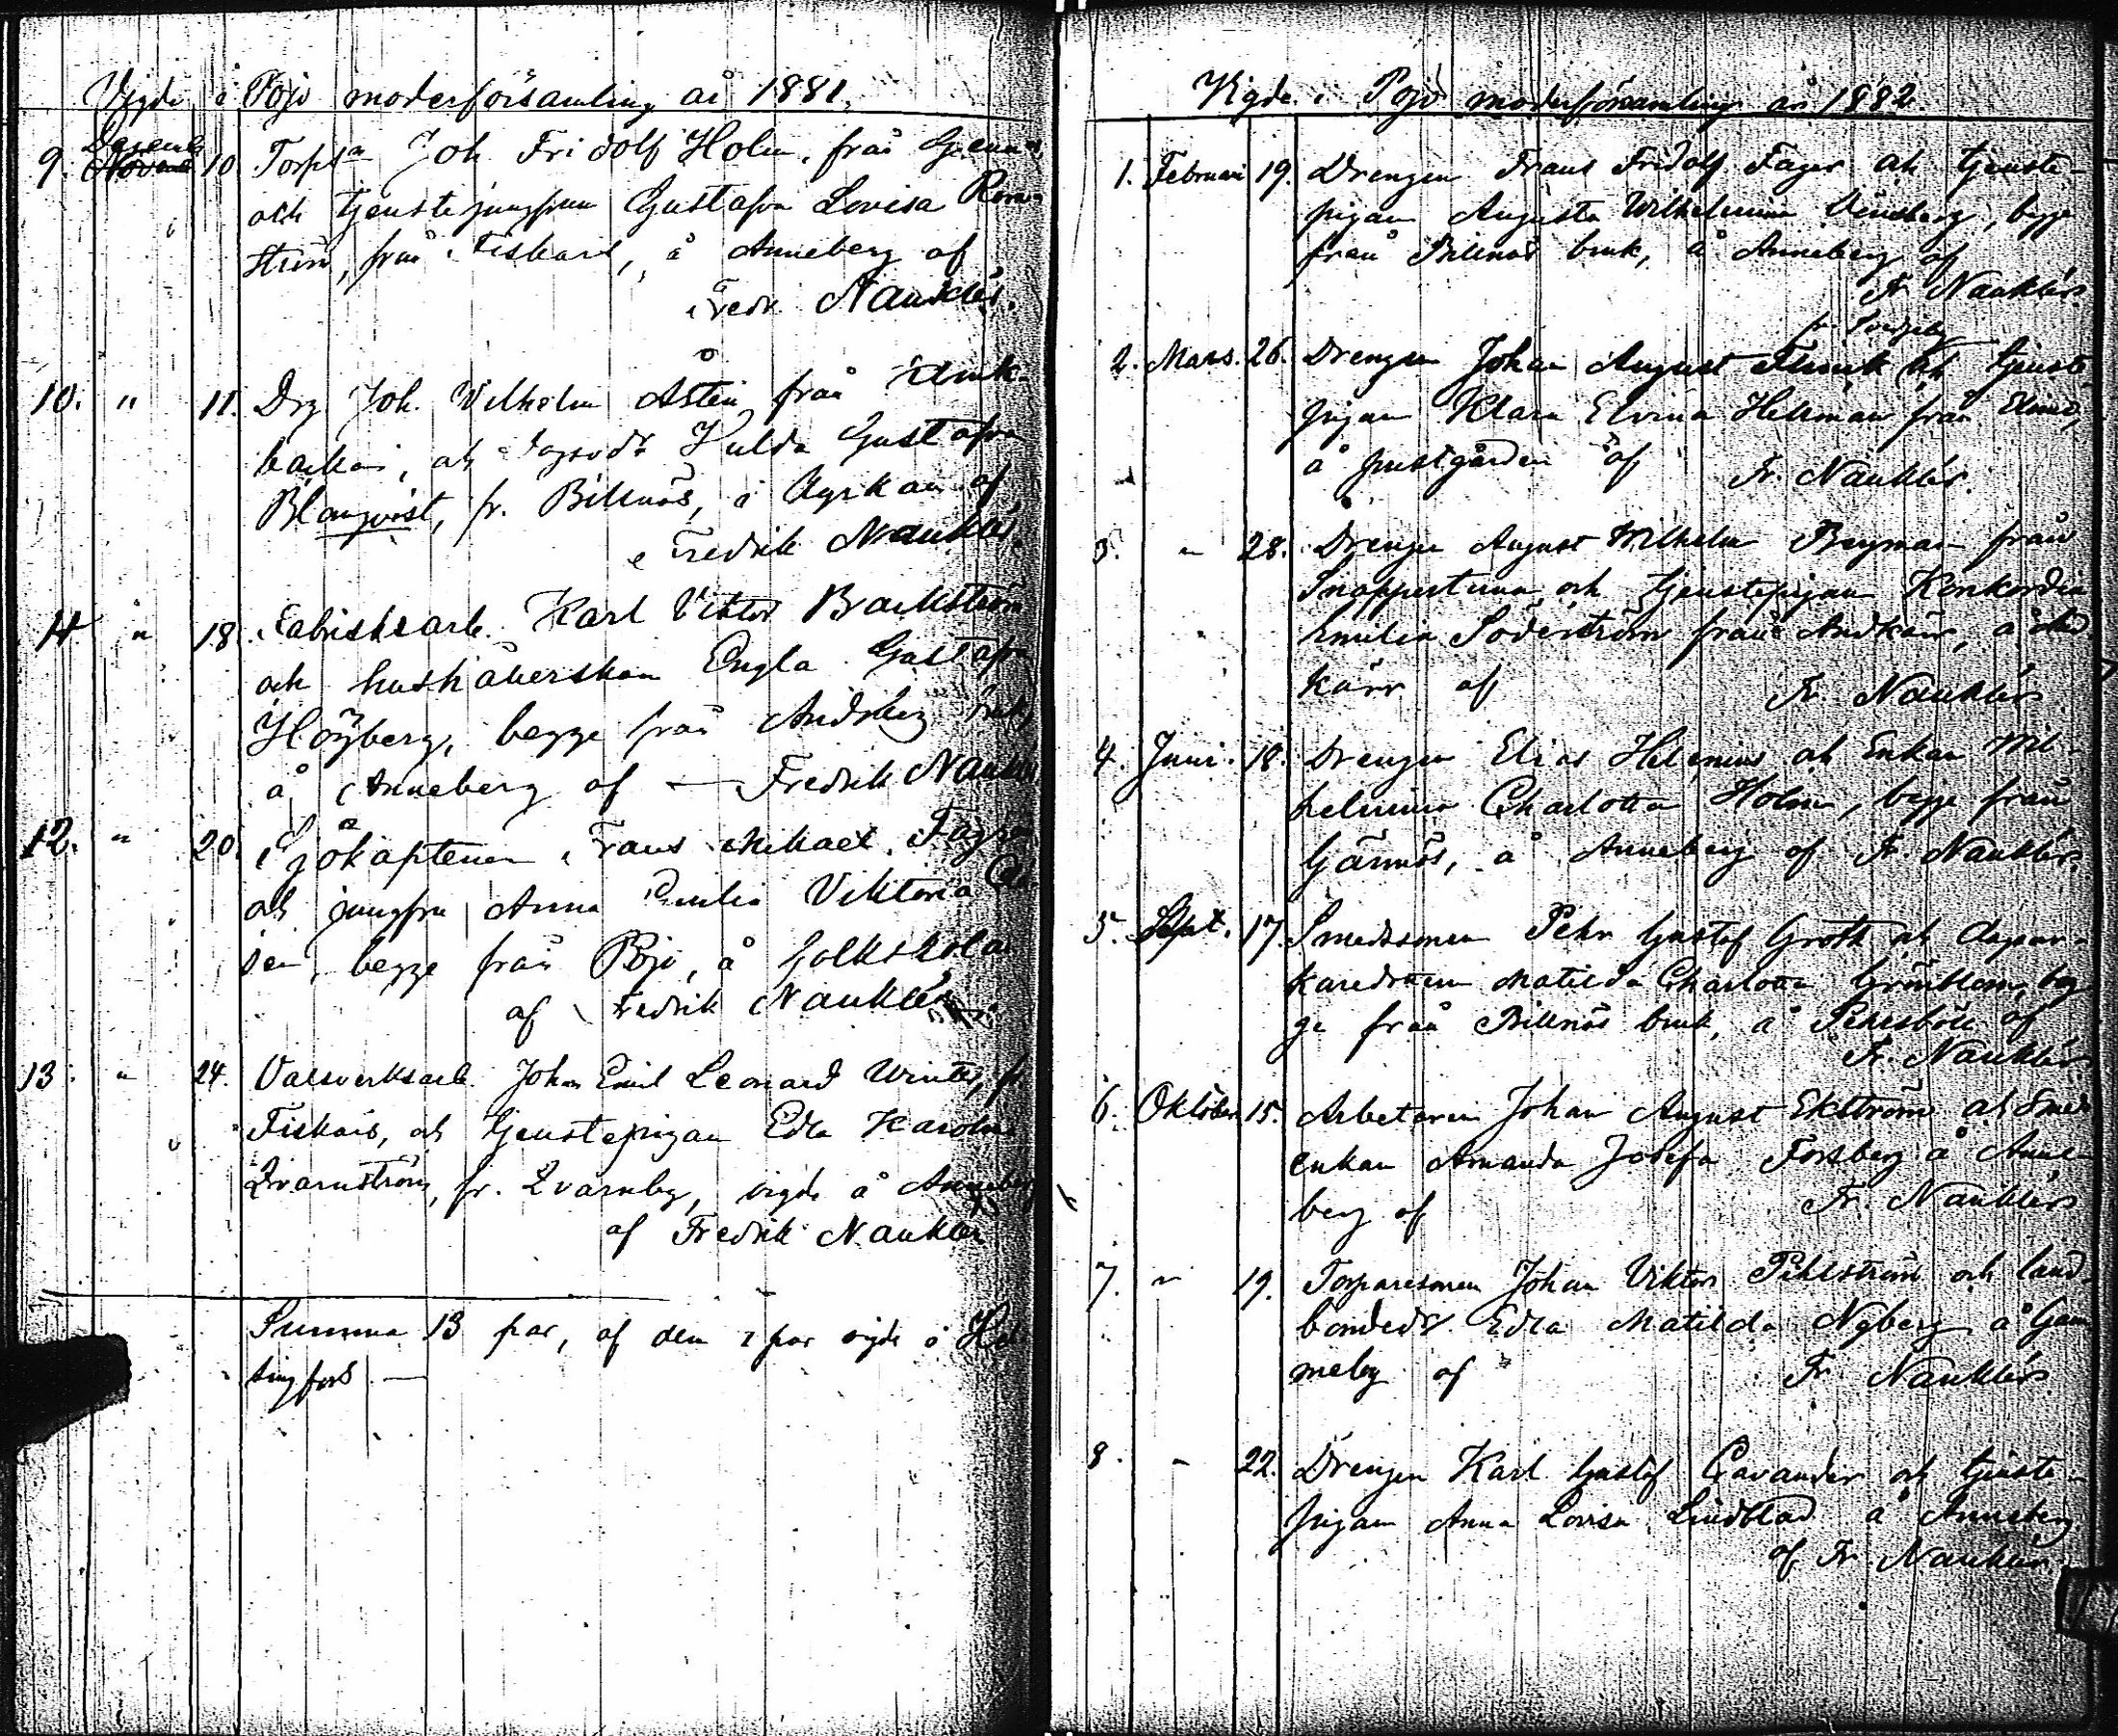 Vigde i Pojo moderförsamling år 1881.
9. Decemb 10. Torps. Joh. Fridolf Holm, från
och tjenstejungfrun Gustafva Lovisa
ström, från Fiskars, å Anneberg af
Fredr. Nauklér.
10. " 11. Drg Joh. Vilhelm Åsten från
backa, och Hulda Gustafva
Blomqvist, fr. Billnäs, i kyrkan af
Fredrik Nauklér.
11 " 18. Fabriksarb. Karl Viktor Backström
och hushållerskan Engla Gustafva
Högberg, begge från
å Anneberg af — Fredrik Nauklér
12. " 20. Sjökaptenen Frans Mikael
och jungfru Anna Emilia Viktoria
sen, begge från Pojo, å folkskolan
af Fredrik Nauklér.
13. " 24. Valsverksarb. Johan Emil Leonard Winter, fr
Fiskars, och tjenstepigan Edla Karolina
Qvarnström, fr. Qvarnby, vigde å Anneberg
af Fredrik Nauklér
Summa 13 par, af dem 1 par vigde i Hel
singfors. —
Vigde i Pojo moderförsamling år 1882.
1. Februari 19. Drengen Frans Fridolf Fager och tjenste-
pigan Augusta Wilhelmina begge
från Billnäs bruk, å Anneberg af
Fr. Nauklér.
2. Mars. 26. Drengen Johan August och tjenste
pigan Klara Elvina Hellman från
å prestgården af Fr. Nauklér.
3. " 28. Drengen August Wilhelm Bergman från
Snappertuna och tjenstepigan Konkordia
Emilia Söderström från Andkärr, å And
kärr af Fr. Nauklér
4. Juni. 18. Drengen Elias Helenius och Enkan Wil-
helmina Charlotta Holm, begge från
Gännäs, å Anneberg af Fr. Nauklér.
5. Sept. 17. Smedssonen Pehr Gustaf Groth och dagsver-
karedottern Matilda Charlotta Grönblom, beg
ge från Billnäs bruk, å af
Fr. Nauklér
6. Oktober 15. Arbetaren Johan August Ekström och Smeds
enkan Amanda Josefa Forsberg å Anne
berg af Fr. Nauklér
7. " 19. Torparesonen Johan Viktor Pihlström och land-
bondedr. Edla Matilda Nyberg å Gam
meby af Fr. Nauklér
8. " 22. Drengen Karl Gustaf Cavander och tjenste-
pigan Anna Lovisa Lindblad å Anneberg
af Fr. Nauklér.